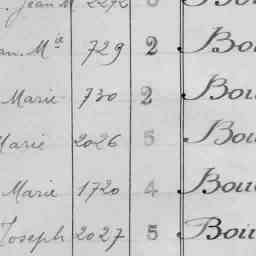 Jean M 2272
an. Mie 729 2 Bou
Marie 730 2 Bou
Marie 2026 5 Bou
Marie 1720 4 Bou
Joseph 2027 5 Bou